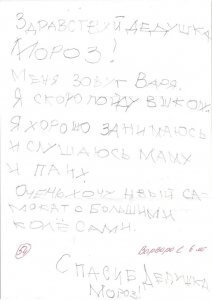 ЗДРАВСТВУЙ ДЕДУШКА
МОРОЗ!
МЕНЯ ЗОВУТ ВАРЯ.
Я СКОРО ПОЙДУ В ШКОЛ.
Я ХОРОШО ЗАНИМАЮСЬ
И СЛУШАЮСЬ МАМУ
И ПАПУ.
ОЧЕНЬ ХОЧУ НВЫЙ СА-
МОКАТ С БОЛЬШИМИ
КОЛЁСАМИ.
Варвара С. 6 лет
54
СПАСИБ ДЕДУШКА
МОРОЗ!